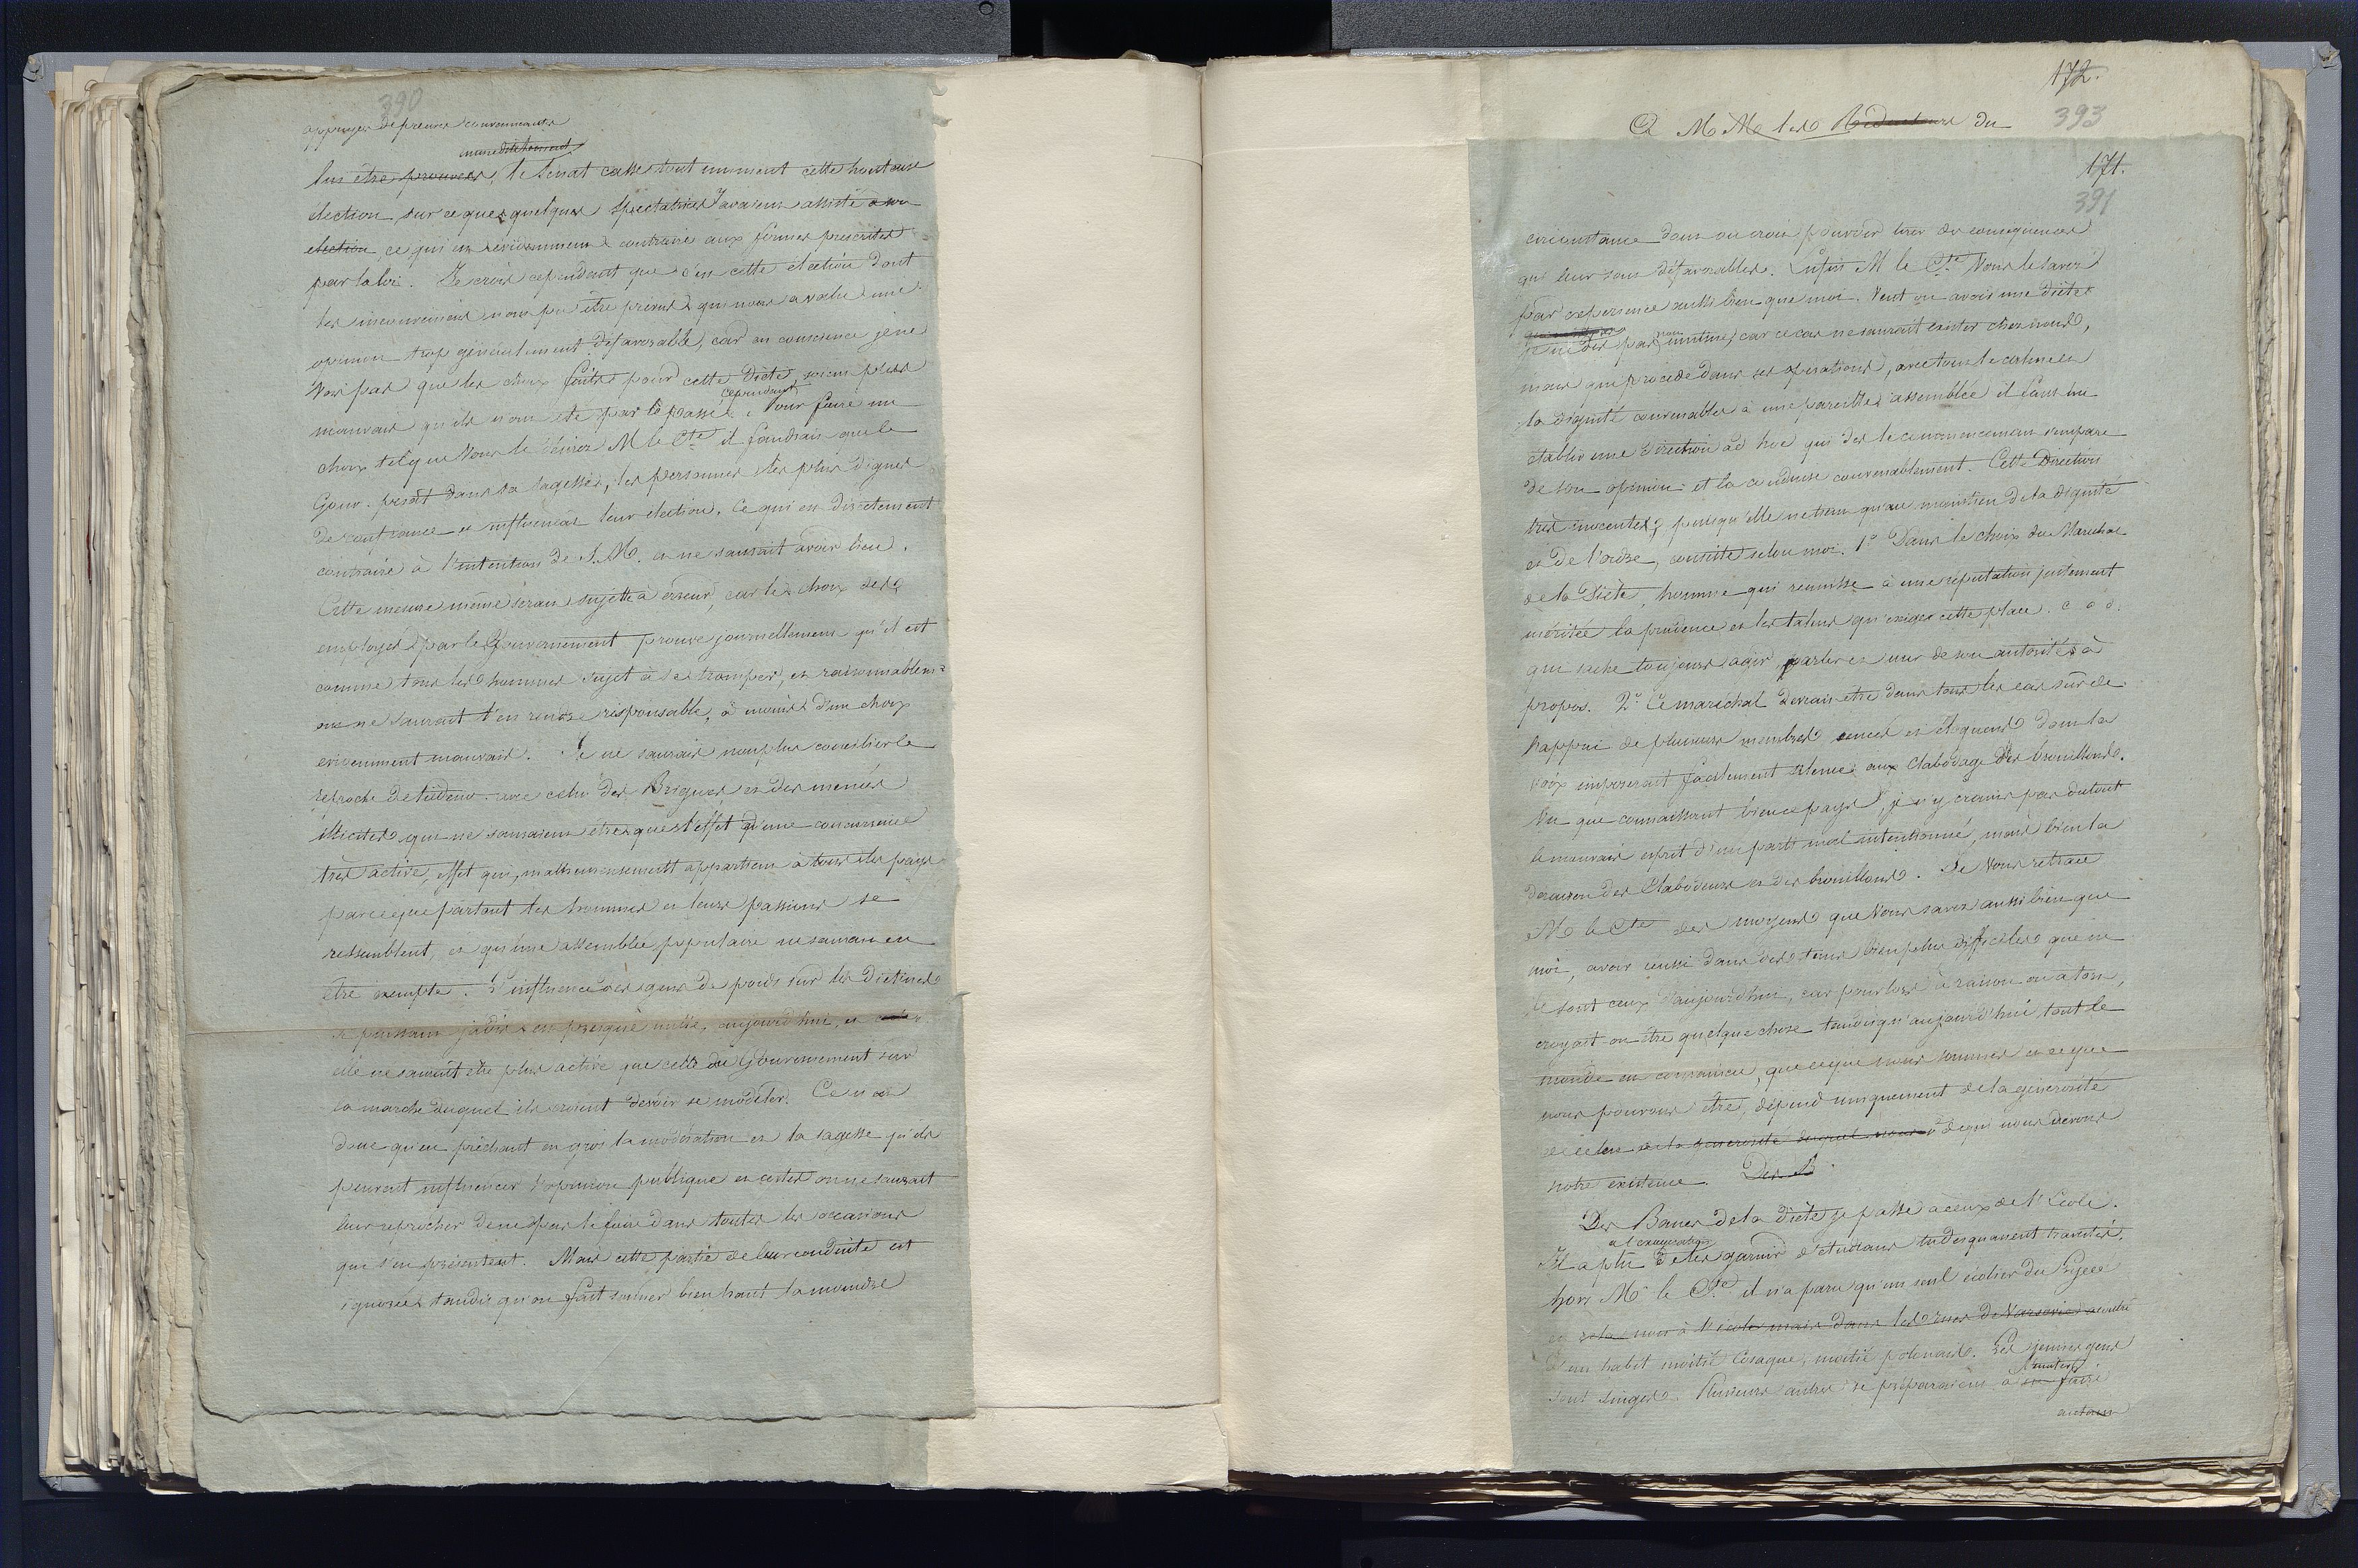 390
appuyer de preuves convaincantes
immediatement
lui être prouvées, le Senat casse tout uniment cette honteuse
élection sur ce que quelques spectatrices avaient assisté à son
election, ce qui est évidemment contraire aux formes prescrites
par la loi. Je crois cependant que c'est cette élection dont
les inconveniens n'ont pu être prévus qui nous a valu une
opinion trop généralement défavorable, car en conscience je ne
vois pas que les choix faits pour cette Diète soient plus
mauvais qu'ils n'ont été par le passé. Pour faire un
cependant
choix tel que Vous le désirez M le Cte il faudrait que le
Gouv. pesât dans sa sagesse, les personnes les plus dignes
de confiance et influençât leur election. Ce qui est directement
contraire à l'intention de S. M. et ne saurait avoir lieu.
Cette mesure même serait sujette à erreur, car le choix des
employés par le Gouvernement prouve journellement qu'il est
comme tous les hommes sujet à se tromper, et raisonnablemt
on ne saurait l'en rendre responsable, à moins d'un choix
evidemment mauvais. Je ne saurais non plus concilier le
reproche de tiedeur avec celui des Brigues et des menées
illicites qui ne sauraient être que l'effet d'une concurrence
très active, effet qui, malheureusement appartient à tous les pays
parceque partout les hommes et leurs passions se
ressemblent, et qu'une assemblée populaire ne saurait en
être exempte. L'influence des gens de poids sur les Dietines
si puissante jadis est presque nulle aujourd'hui, et
elle ne saurait etre plus active que celle du Gouvernement sur
la marche duquel ils croient devoir se modeler. Ce n'est
donc qu'en prêchant en gros la modération et la sagesse qu'ils
peuvent influencer l'opinion publique et certes on ne saurait
leur reprocher de ne pas le faire dans toutes les occasions
qui s'en présentent. Mais cette partie de leur conduite est
ignorée tandis qu'on fait sonner bien haut la moindre
172.
393
A M M les Rédacteurs du
171.
391
circonstance dont on croit pouvoir tirer des conséquences
qui leur sont défavorables. Enfin M le Cte Vous le savez
par experience aussi bien que moi. Veut on avoir une Diète
je ne dis pas non mutine, car ce cas ne saurait exister chez nous,
mais qui procède dans ses opérations, avec tout le calme et
la dignité convenables à une pareille assemblée il faut lui
etablir une Direction ad hoc qui dès le commencement s'empare
de son opinion et la conduise convenablement. Cette Direction
très inocente, puisqu'elle ne tient qu'au maintien de la dignité
et de l'ordre, consiste selon moi. 1° Dans le choix du Marechal
de la Diète, homme qui reunisse à une réputation justement
méritée la prudence et les talens qu'exige cette place. c a d.
qui sache toujours agir parler et user de son autorité à
propos. 2° Ce maréchal devrait etre dans tous les cas sûr de
l'appui de plusieurs membres sensés et éloquens dont la
voix imposerait facilement silence aux clabodage des brouillons.
Vu que connaissant bien ce pays, je n'y crains pas du tout
le mauvais esprit d'un parti mal intentionné, mais bien la
deraison des Clabodeurs et des brouillons. Je Vous retrace
M le Cte des moyens que Vous savez aussi bien que
moi, avoir reussi dans des tems bien plus difficiles que ne
le sont ceux d'aujourd'hui, car pour lors à raison ou à tort,
croyait on être quelque chose tandis qu'aujourd'hui tout le
monde est convaincu, que ce que nous sommes et ce que
nous pouvons être, dépend uniquement de la générosité
de celui de la generosité duquel nous à de qui nous devons
notre existence. Des B
Des Bancs de la Diète je passe à ceux de l'Ecole.
à l'exagération
Il a plu de les garnir d'étudians tudesquement travestis.
hors M le Cte il n'a paru qu'un seul écolier du Lycée
et cela non à l'école mais dans les rues de Varsovie
d'un habit moitié Cosaque, moitié polonais. Les jeunes gens
sont singes. Plusieurs autres se préparaient à en faire
l'imiter
autant